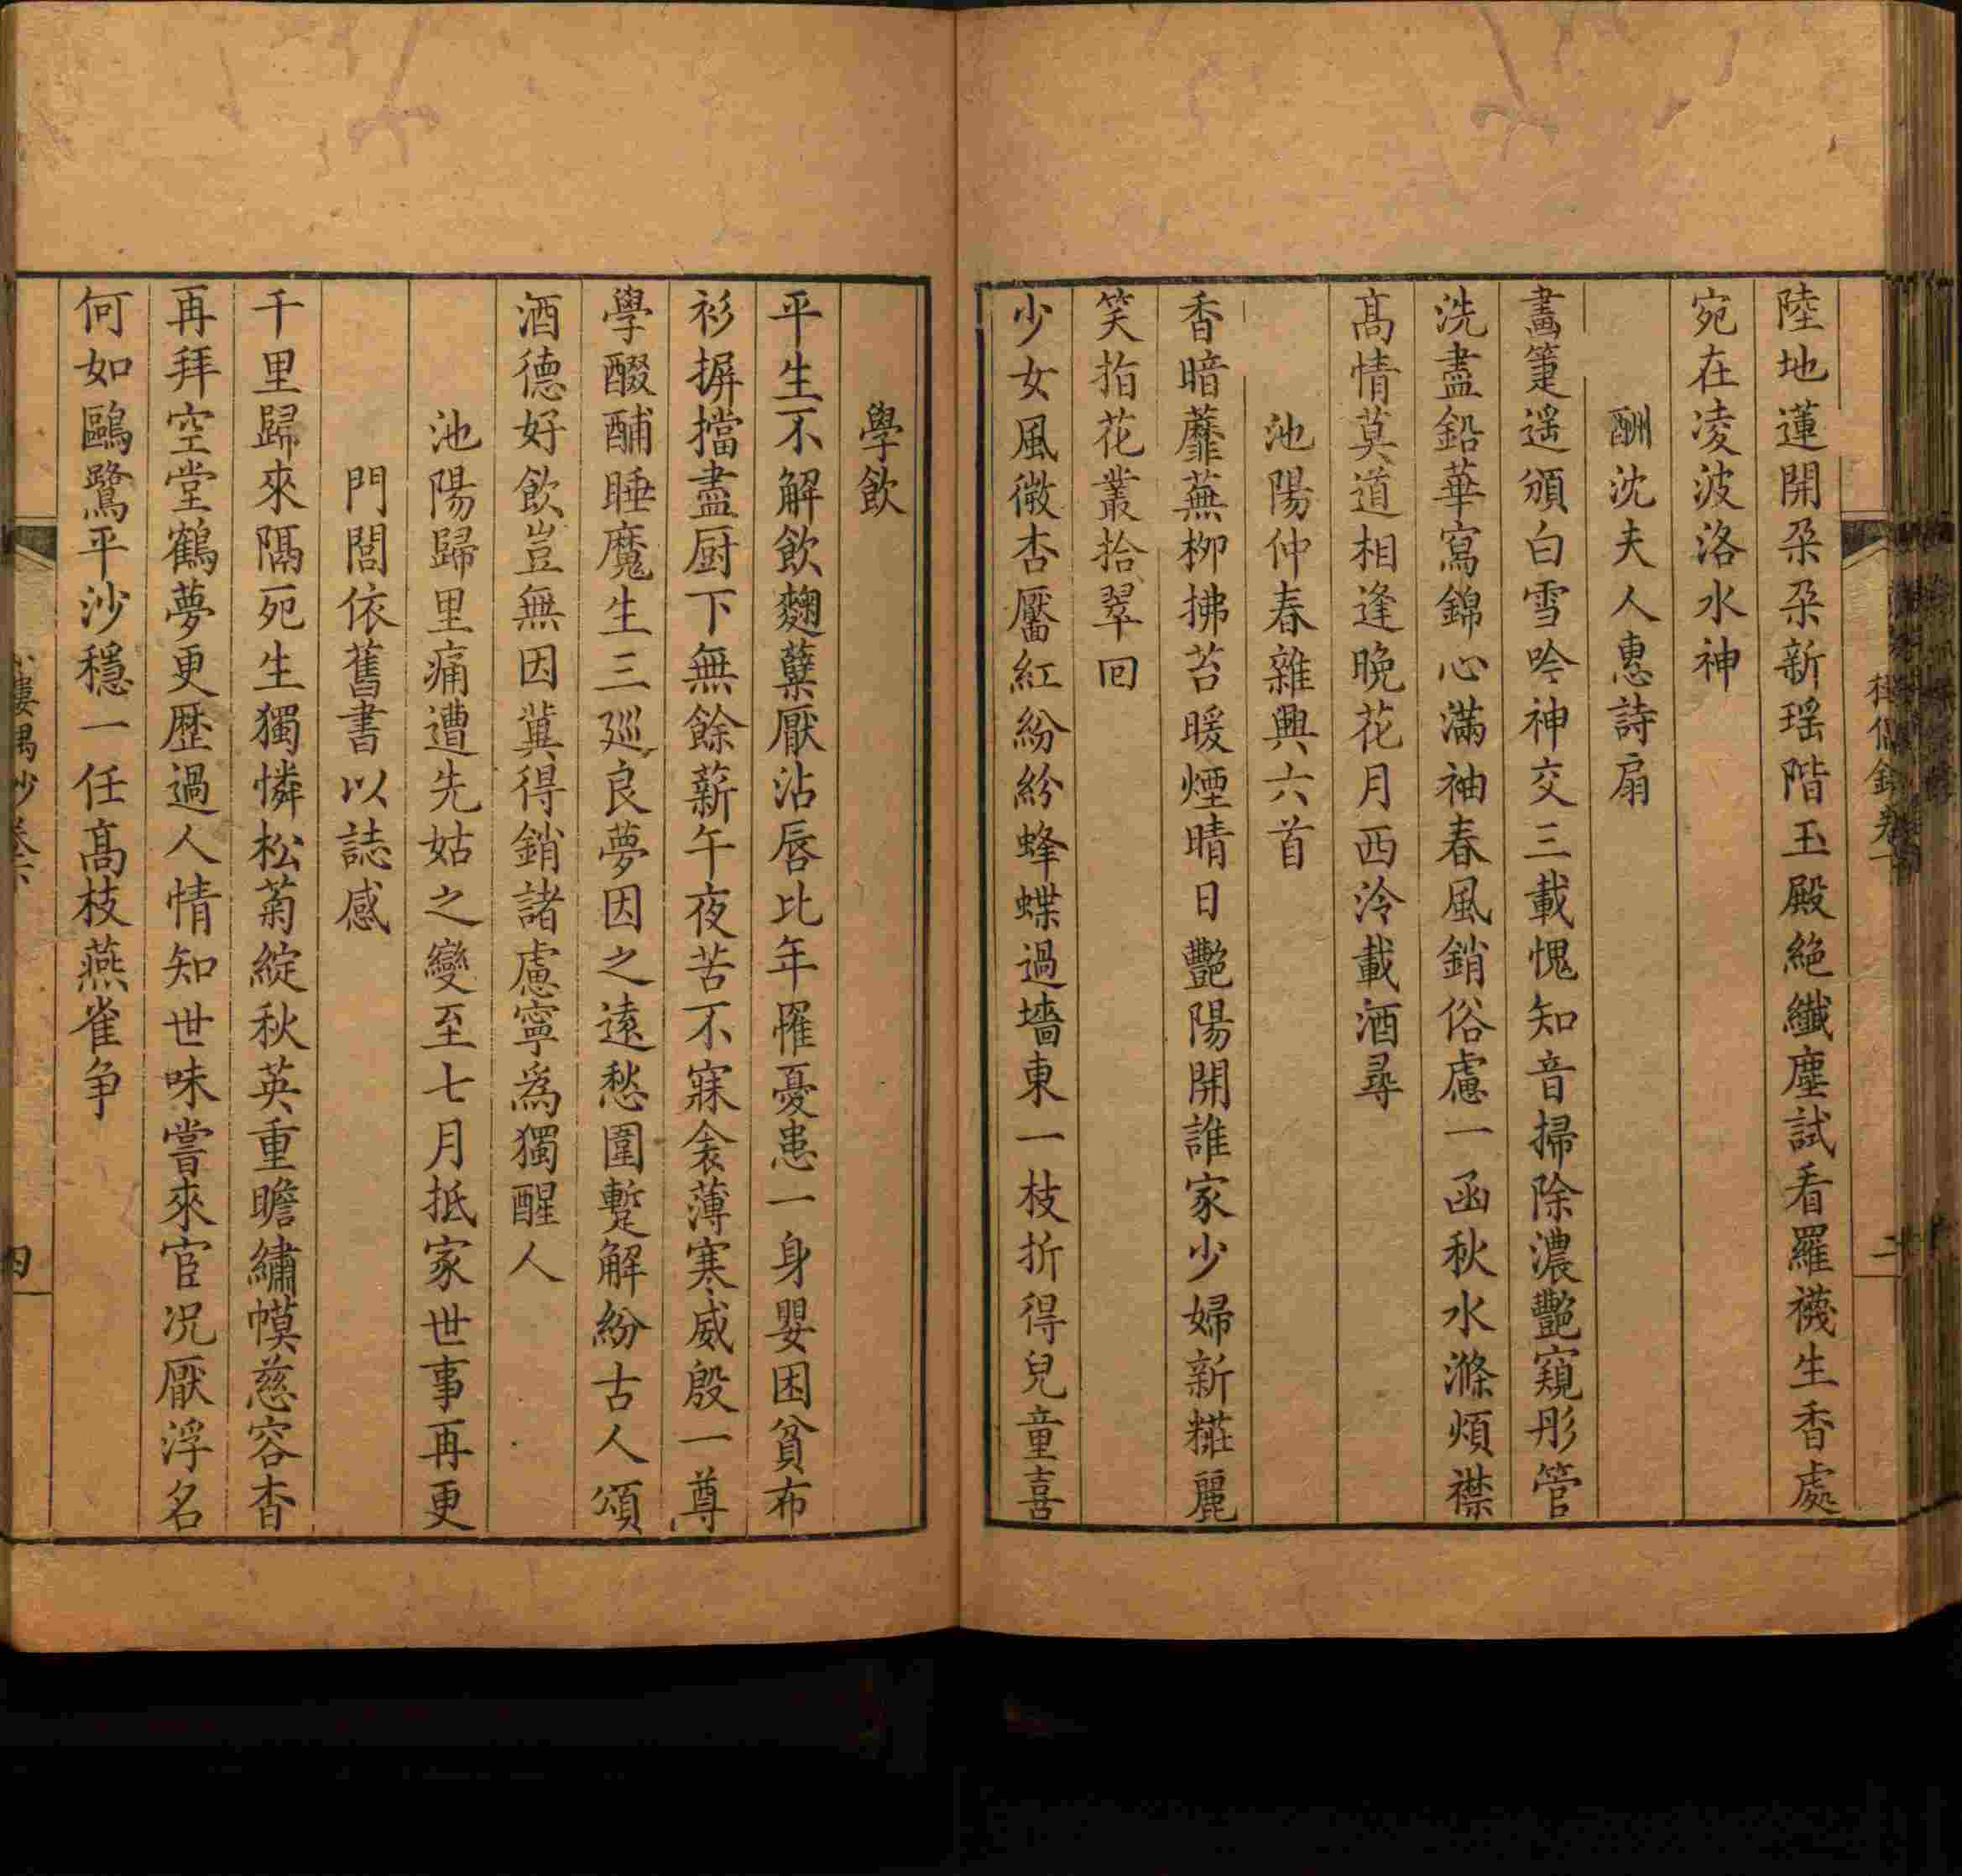 陸地蓮開朶朶新瑶階玉殿絶纖塵試看羅襪生香處
宛在凌波洛水神
酬沈夫人惠詩扇
畵箑遥頒白雪吟神交三載愧知音掃除濃艷窺彤管
洗盡鉛華寫錦心滿袖春風銷俗慮一函秋水滌煩襟
髙情莫道相逢晚花月西泠載酒尋
池陽仲春雜興六首
香暗蘼蕪柳拂苔暖煙晴日艷陽開誰家少婦新糚麗
笑指花叢拾翠回
少女風微杏靨紅紛紛蜂蝶過墻東一枝折得兒童喜
學飲
平生不解飲麴蘖厭沾唇比年罹憂患一身嬰困貧布
衫摒擋盡厨下無餘薪午夜苦不寐衾薄寒威殷一尊
學醊酺睡魔生三廵良夢因之遠愁圍蹔解紛古人頌
酒德好飲豈無因冀得銷諸慮寧爲獨醒人
池陽歸里痛遭先姑之變至七月抵家世事再更
門閭依舊書以誌感
千里歸來隔死生獨憐松菊綻秋英重瞻繡幙慈容杳
再拜空堂鶴夢更歴過人情知世味嘗來宦况厭浮名
何如鷗鷺平沙穩一任髙枝燕雀争
四
二